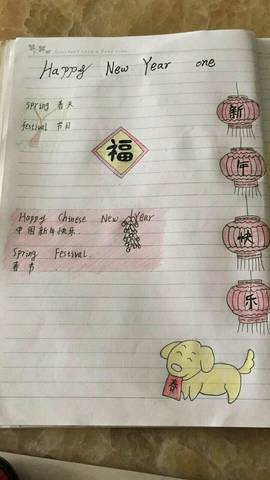 Happy New Year one
Spring 春天
festival 节日
福
新
年
快
乐
Happy Chinese New Year
中国新年快乐
Spring Festival
春节
春